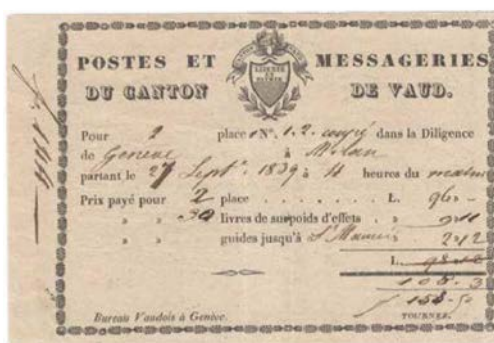 POSTES ET MESSAGERIES
DU CANTON DE VAUD.
LIBERTÉ ET PATRIE
Pour 2 place s Nº. 1. 2. coupé dans la Diligence
de Genève à Milan
partant le 27 Sept. 1839 à 11 heures du matin
Prix payé pour 2 place . . . . L. 96 -
» » 30 livres de surpoids d'effets . »
» » guides jusqu'à St. Maurice » 2 12
L.
108. 3
158. 50
Bureau Vaudois à Genève. TOURNEZ.